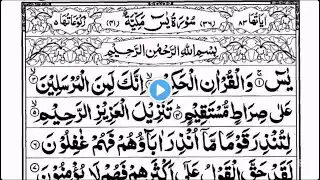 اٰیَاتُهَا ٨٣ (٣٦) سُوْرَةُ یٰسٓ مَکِّیَّةٌ (٤١) رُکُوْعَاتُهَا ٥
بِسْمِ اللّٰهِ الرَّحْمٰنِ الرَّحِیْمِ
یٰسٓ ۚ١ وَالْقُرْاٰنِ الْحَکِیْمِ ۙ٢ اِنَّکَ لَمِنَ الْمُرْسَلِیْنَ ۙ٣
عَلٰی صِرَاطٍ مُّسْتَقِیْمٍ ؕ٤ تَنْزِیْلَ الْعَزِیْزِ الرَّحِیْمِ ۙ٥
لِتُنْذِرَ قَوْمًا مَّاۤ اُنْذِرَ اٰبَآؤُهُمْ فَهُمْ غٰفِلُوْنَ ٦
لَقَدْ حَقَّ الْقَوْلُ عَلٰۤی اَکْثَرِهِمْ فَهُمْ لَا یُؤْمِنُوْنَ ٧